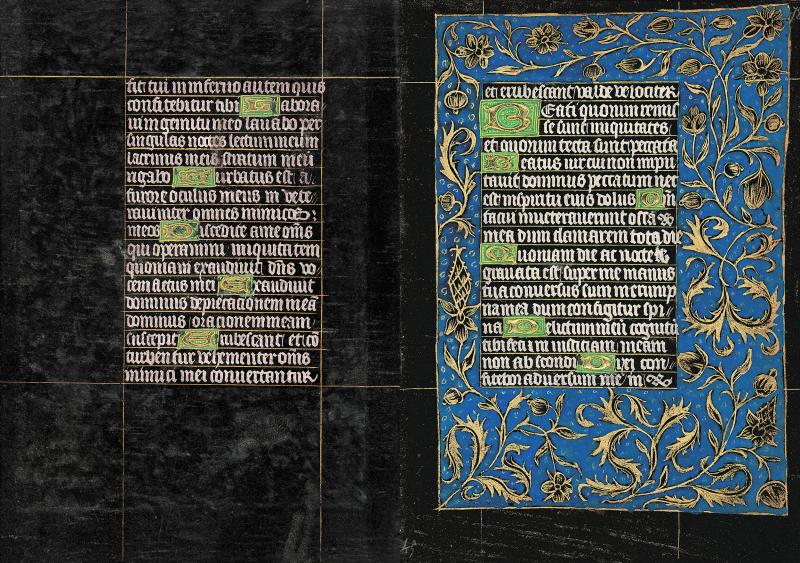 sit tui in inferno autem quis
confitebitur tibi Labora
ui in gemitu meo lauabo per
singulas noctes lectum meum
lacrimis meis stratum meū
rigabo Turbatus est a
furore oculus meus in vete
raui inter omnes inimicos
meos Discedite a me om̄s
qui operamini iniquitatem
quoniam exaudiuit dn̄s vo
cem fletus mei Exaudiuit
dominus deprecationem meā
dominus orationem meam
suscepit Erubescant et cō
turbentur vehementer om̄s
inimici mei conuertantur
et erubescant valde velociter
Beati quorum remis
se sunt iniquitates
et quorum tecta sunt peccata
Beatus uir cui non impu
tauit dominus peccatum nec
est in spiritu eius dolus Qm̄
tacui inueterauerunt ossa
mea dum clamarem tota die
Quoniam die ac nocte
grauata est super me manus
tua conuersus sum in erump
na mea dum configitur spi
na Delictum meū cognitū
tibi feci et iniusticiam meam
non abscondi Dixi con
fitebor aduersum me in